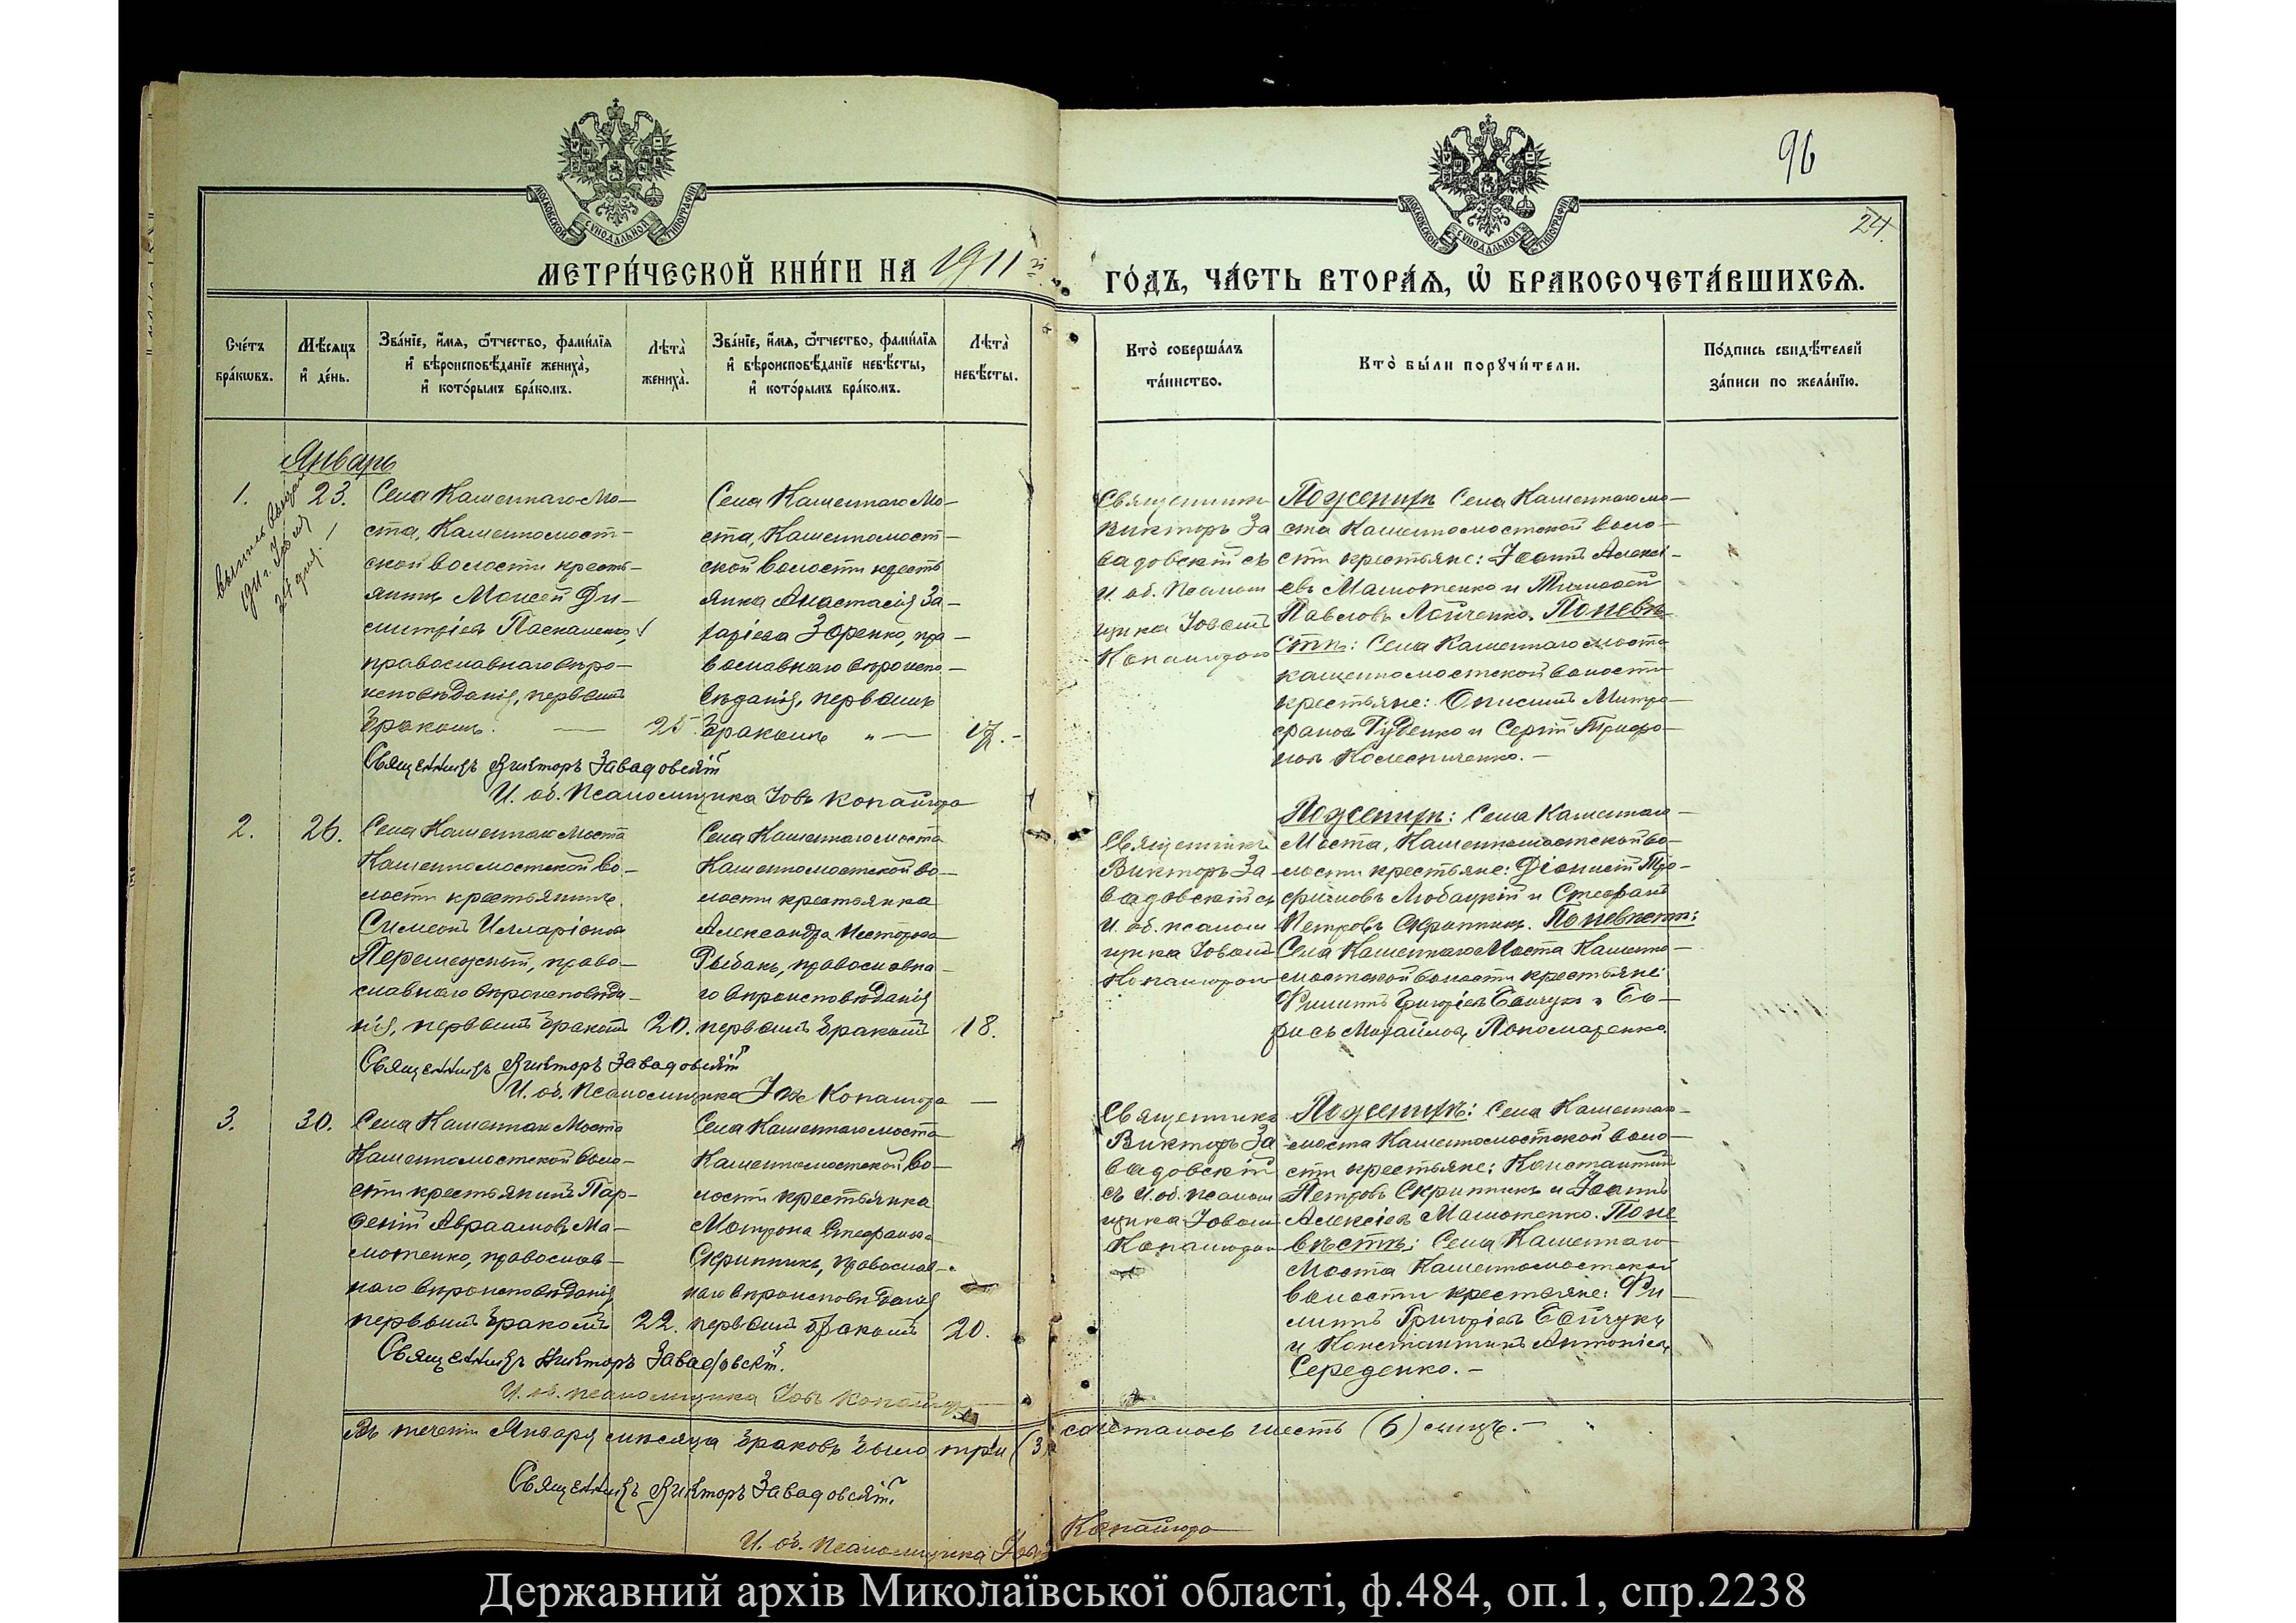 96
24.
МОСКОВСКОЙ СѴНОДАЛЬНОЙ ТИПОГРАФІИ
МОСКОВСКОЙ СѴНОДАЛЬНОЙ ТИПОГРАФІИ
МЕТРИ́ЧЕСКОЙ КНИ́ГИ НА 1911й
ГО́ДЪ, ЧА́СТЬ ВТОРА́Ѧ, Ѡ҆ БРАКОСОЧЕТА́ВШИХСѦ.
Сче́тъ бра́кѡвъ.
Мѣ́сяцъ и҆ де́нь.
Зва́нїе, и҆́мѧ, ѻ҆́тчество, фами́лїѧ
и҆ вѣроисповѣ́данїе жениха̀,
и҆ кото́рымъ бра́комъ.
Лѣта̀ жениха̀.
Зва́нїе, и҆́мѧ, ѻ҆́тчество, фами́лїѧ
и҆ вѣроисповѣ́данїе невѣ́сты,
и҆ кото́рымъ бра́комъ.
Лѣта̀ невѣ́сты.
Кто̀ соверша́лъ
та́инство.
Кто̀ бы́ли порꙋчи́тели.
По́дпись свидѣ́телей
за́писи по жела́нїю.
Январь
1.
23.
Села Каменнаго-Мо-
ста, Каменномост-
ской волости кресть-
янинъ Моисей Ди-
митріевъ Паскаленко,
православнаго вѣро-
исповѣданія, первымъ
бракомъ. — 25.
Села Каменнаго Мо-
ста, Каменномост-
ской волости кресть
янка Анастасія За-
харіева Зоренко, пра-
вославнаго вѣроиспо-
вѣданія, первымъ
бракомъ „ — 17. -
Священникъ Викторъ Завадовскій
И. об. Псаломщика Іовъ Копайгора
Священникъ
Викторъ За
вадовскій съ
И. об. Псалом
щика Іовомъ
Копайгорою
По женихѣ Села Каменнаго мо-
ста Каменномостской воло-
сти крестьяне: Іоаннъ Алексі-
евъ Малютенко и Тимофей
Павловъ Лойченко. По невѣ
стѣ: Села Каменнаго моста
каменномостской волости
крестьяне: Онисимъ Митро-
фановъ Руденко и Сергій Трифо-
новъ Колесниченко. -
2.
26.
Села Каменнаго Моста
Каменномостской во-
лости крестьянинъ
Симеонъ Илларіоновъ
Перемежный, право-
славнаго вѣроисповѣда-
нія, первымъ бракомъ 20.
Села Каменнаго моста
Каменномостской во-
лости крестьянка
Александра Несторова
Рыбакъ, православна-
го вѣроисповѣданія
первымъ бракомъ 18.
Священникъ Викторъ Завадовскій
И. об. Псаломщика Іовъ Копайгора
Священникъ
Викторъ За-
вадовскій съ
И. об. псалом
щика Іовомъ
Копайгорою
По женихѣ: Села Каменнаго
Моста, Каменномостской во-
лости крестьяне: Діонисій Тро-
фимовъ Любацкій и Стефанъ
Петровъ Скрипникъ. По невѣстѣ:
Села Каменнаго Моста Каменно-
мостской волости крестьяне:
Филиппъ Григоріевъ Бойчукъ и Бо-
рисъ Михайловъ Пономаренко.
3.
30.
Села Каменнаго Моста
Каменномостской воло-
сти крестьянинъ Пар-
феній Авраамовъ Ма-
лютенко, православ-
наго вѣроисповѣданія
первымъ бракомъ 22.
Села Каменнаго моста
Каменномостской во-
лости крестьянка
Матрона Стефанова
Скрипникъ, православ-
наго вѣроисповѣданія
первымъ бракомъ 20.
Священникъ Викторъ Завадовскій.
И. об. псаломщика Іовъ Копайгора
Священникъ
Викторъ За
вадовскій
съ И. об. псалом
щика Іовомъ
Копайгорою
По женихѣ: Села Каменнаго
моста Каменномостской воло-
сти крестьяне: Константинъ
Петровъ Скрипникъ и Іоаннъ
Алексіевъ Малютенко. По не
вѣстѣ: Села Каменнаго
Моста Каменномостской
волости крестьяне: Фи
липпъ Григоріевъ Бойчукъ
и Константинъ Антоніевъ
Середенко. -
Въ теченіи Января мѣсяца браковъ было три (3) сочеталось шесть (6) лицъ. -
Священникъ Викторъ Завадовскій
И. об. Псаломщика Іовъ Копайгора
Державний архів Миколаївської області, ф.484, оп.1, спр.2238